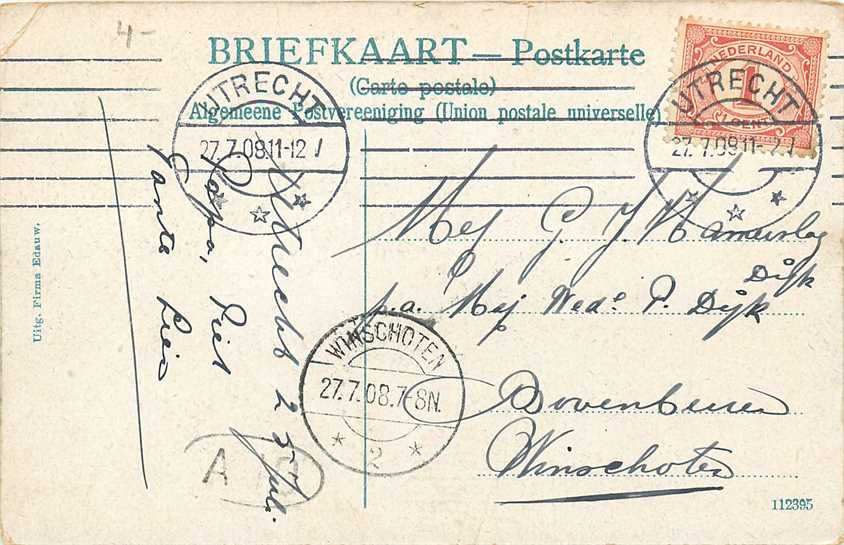 4-
BRIEFKAART — Postkarte
(Carte postale)
Algemeene Postvereeniging (Union postale universelle)
NEDERLAND
1
CENT
UTRECHT
27.7.08.11-12
UTRECHT
27.7.08.11-
Uitg. Firma Edauw.
Utrecht 25 Juli.
Papa, Piet
Tante
Mej G. J. Hamerslag
Dijk
p.a. Mej Wede P. Dijk
Winschoten
WINSCHOTEN
27.7.08.7-8N.
2
A
112395